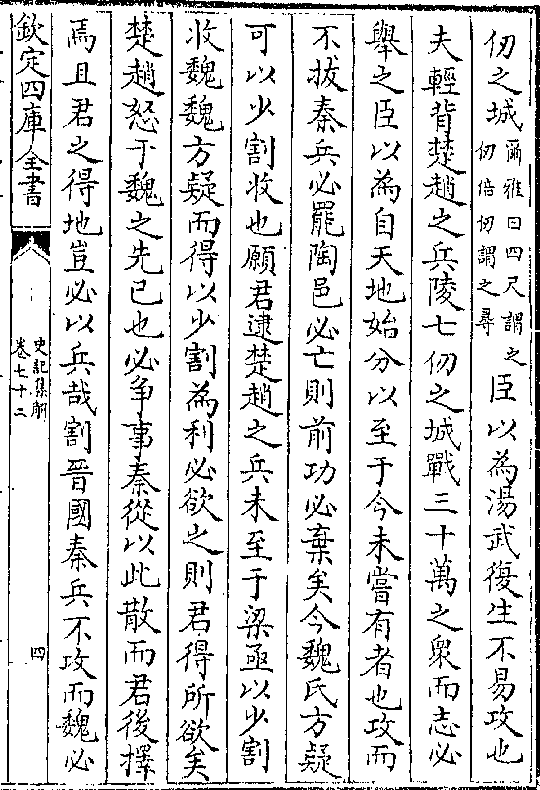 仞之城爾雅曰四尺謂之仞倍仞謂之尋臣以為湯武復生不易攻也
夫輕背楚趙之兵陵七仞之城戰三十萬之衆而志必
舉之臣以為自天地始分以至于今未嘗有者也攻而
不拔秦兵必罷陶邑必亡則前功必棄矣今魏氏方疑
可以少割收也願君逮楚趙之兵未至于梁亟以少割
收魏魏方疑而得以少割為利必欲之則君得所欲矣
楚趙怒于魏之先已也必爭事秦從以此散而君後擇
焉且君之得地豈必以兵哉割晉國秦兵不攻而魏必
欽定四庫全書
史記集解
卷七十二
四